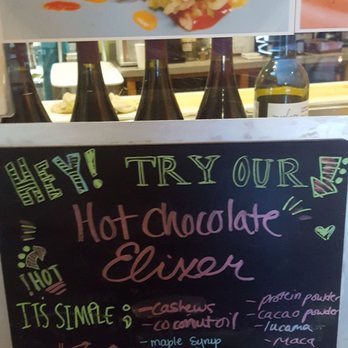 HEY! TRY OUR
Hot Chocolate
Elixer
HOT
IT'S SIMPLE ;
- cashews
- coconut oil
- maple syrup
- protein powder
- cacao powder
- lucama
- maca